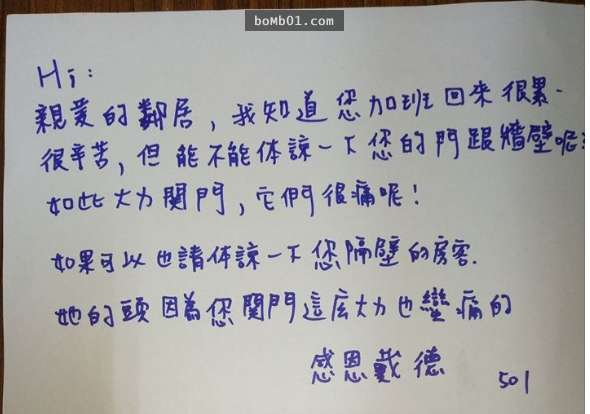 boMb01.com
Hi:
親愛的鄰居，我知道您加班回來很累、
很辛苦，但能不能体諒一下您的門跟牆壁呢?
如此大力関門，它們很痛呢！
如果可以也請体諒一下您隔壁的房客.
她的頭因為您関門這庅大力也蠻痛的
感恩戴德
501